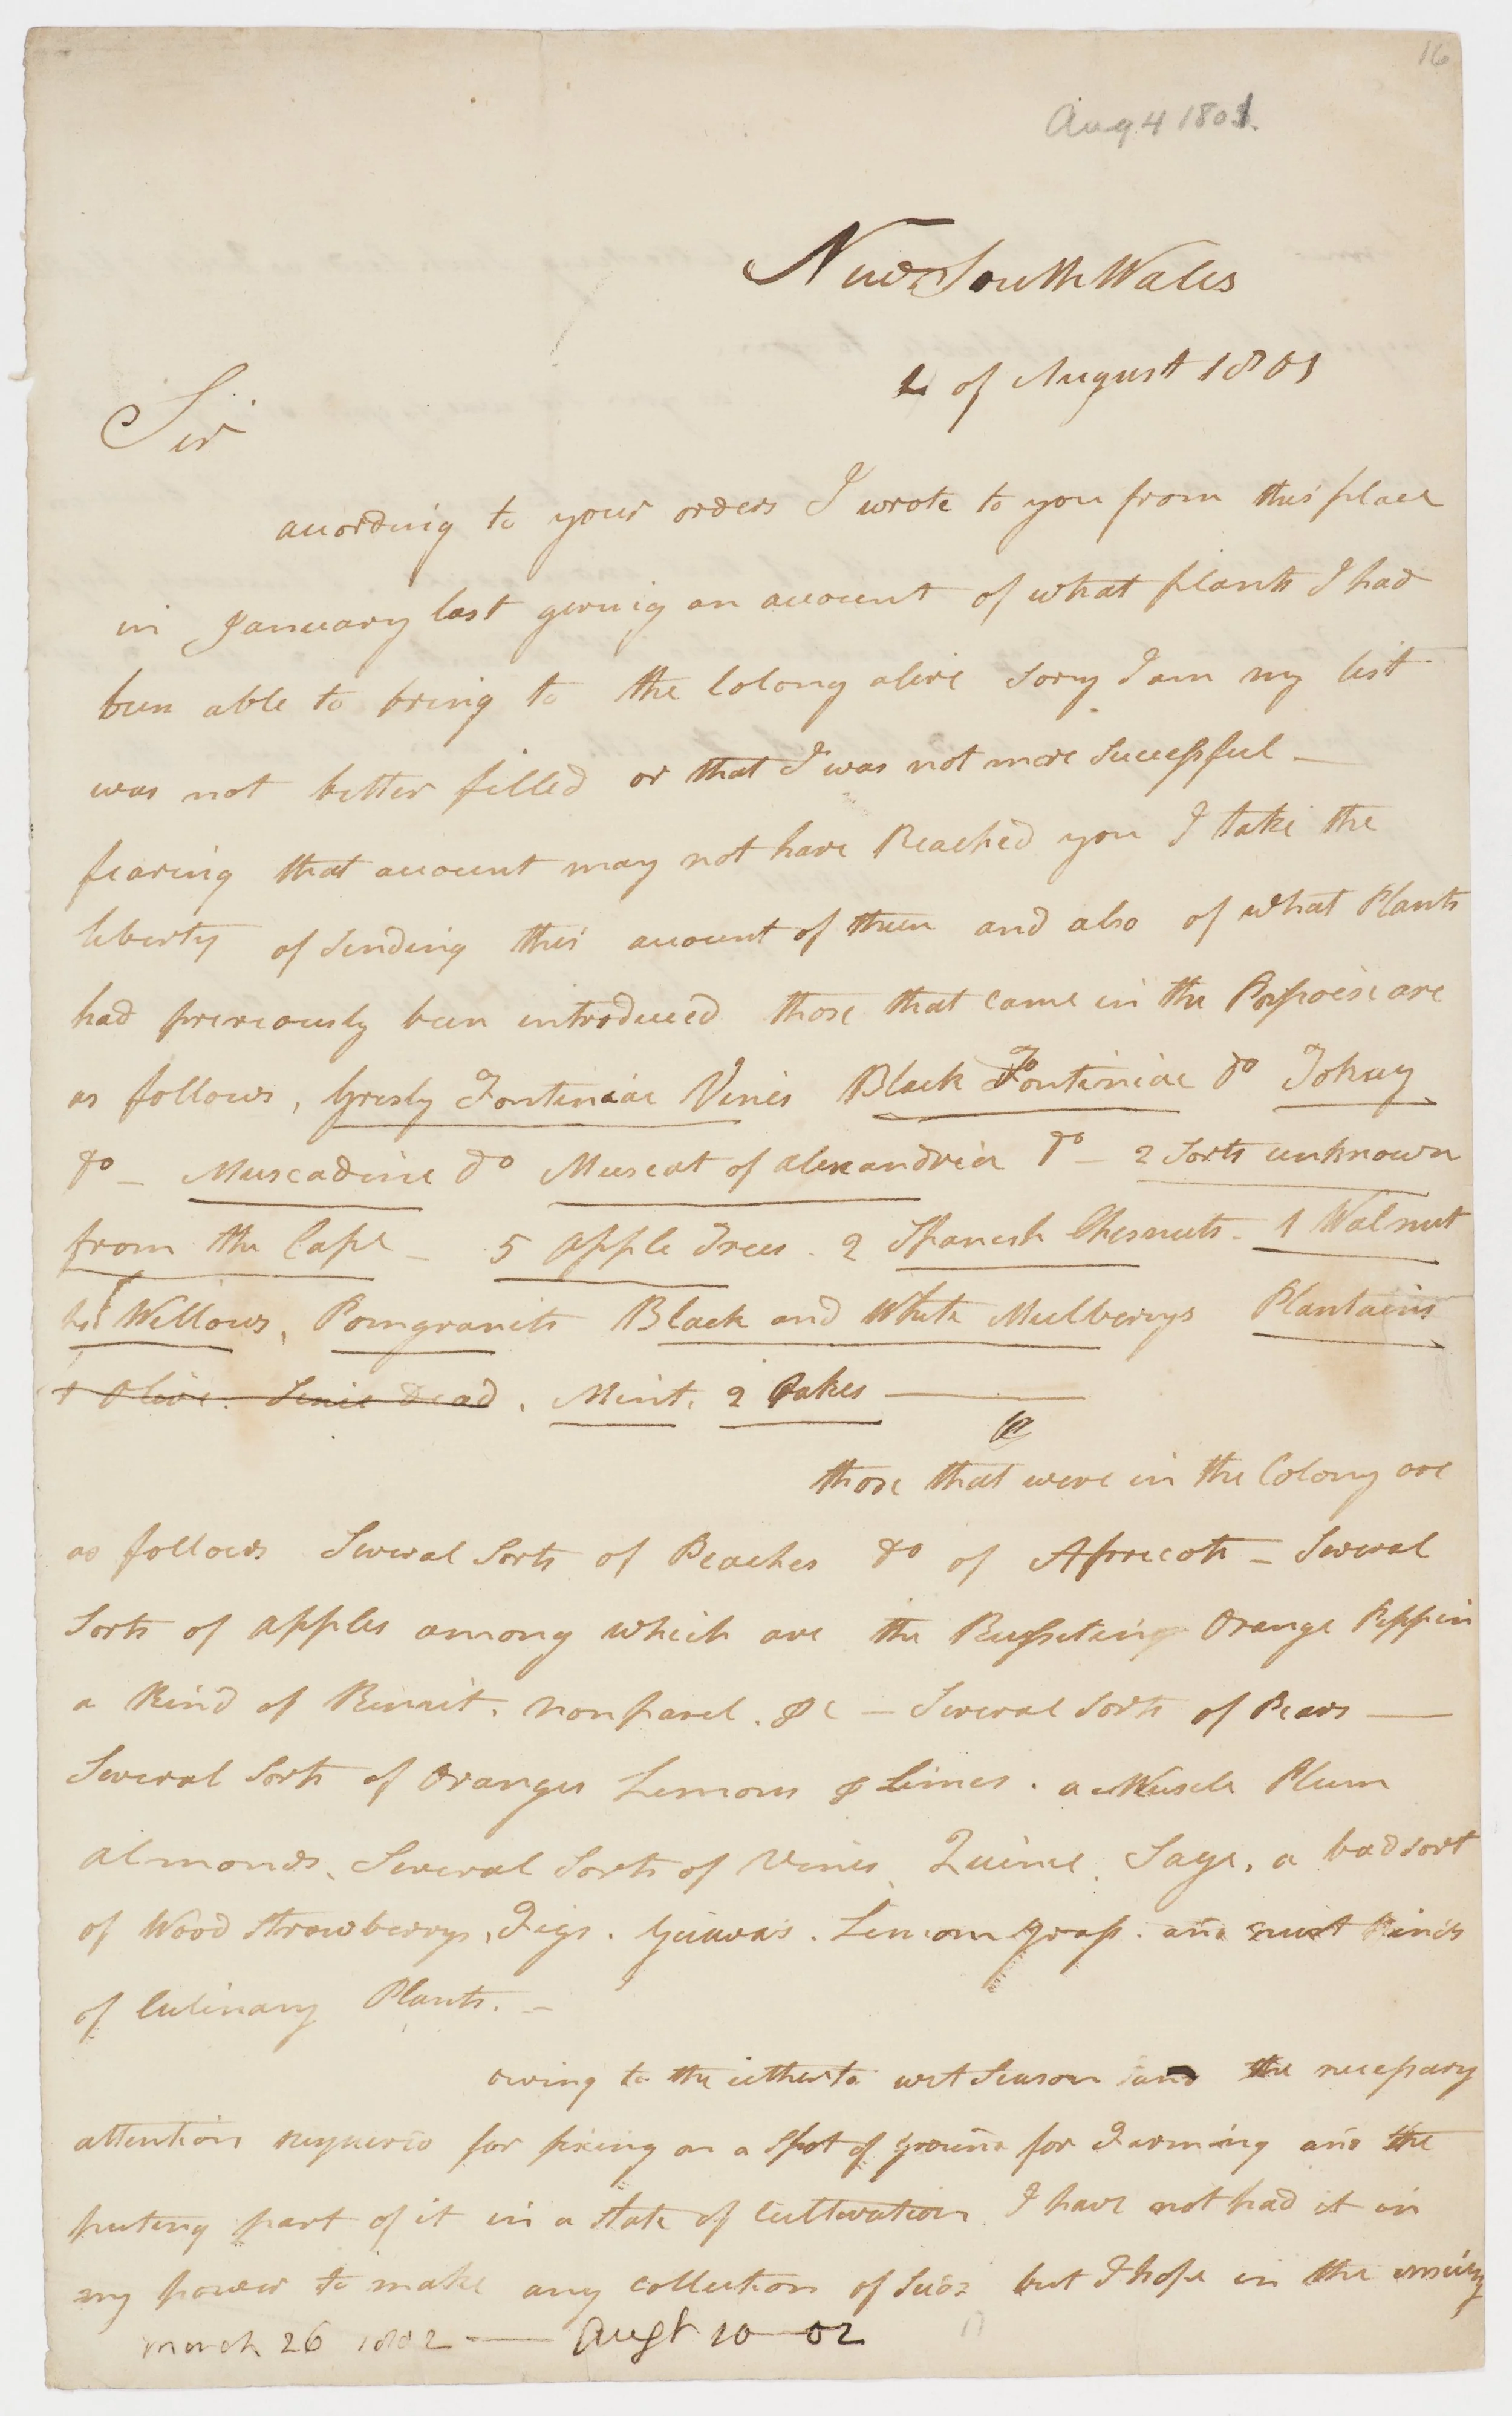 16
Aug 4 1801.
New South Wales
4 of August 1801
Sir
according to your orders I wrote to you from this place
in January last giving an account of what plants I had
been able to bring to the Colony alive sorry I am my list
was not better filled or that I was not more Successful —
fearing that account may not have Reached you I take the
liberty of Sending this account of them and also of what Plants
had previously been introduced those that came in the Porpoise are
as follows, Gresly Fontiniac Vines Black Fontiniac do Tokay
do — Muscadine do Muscat of alexandria do — 2 Sorts unknown
from the Cape — 5 apple Trees . 2 Spanish Chesnuts . 1 Walnut
Willows, Pomgranits Black and White Mulberrys Plantains
1 Olive. Sinie dead . Mint. 2 Oakes —
those that were in the Colony are
as follows Several Sorts of Peaches do of Apricots — Several
Sorts of apples among which are the Russeting Orange Pippin
a Kind of Rennit. nonparel. &c — Several Sorts of Pears —
Several Sorts of Oranges Lemons & Limes . a Muscle Plum
almonds, Several Sorts of Vines, Quince. Sage, a bad sort
of Wood Strawberrys, Figs . Guavas . Lemon grass . and most Kinds
of Culinary Plants. —
owing to the itherto wet Season and the necessary
attention requierd for fixing on a Spot of ground for Farming and the
puting part of it in a state of Cultivation I have not had it in
my power to make any collection of Seeds but I hope in the ensuing
March 26 1802 — Augt 10 — 02